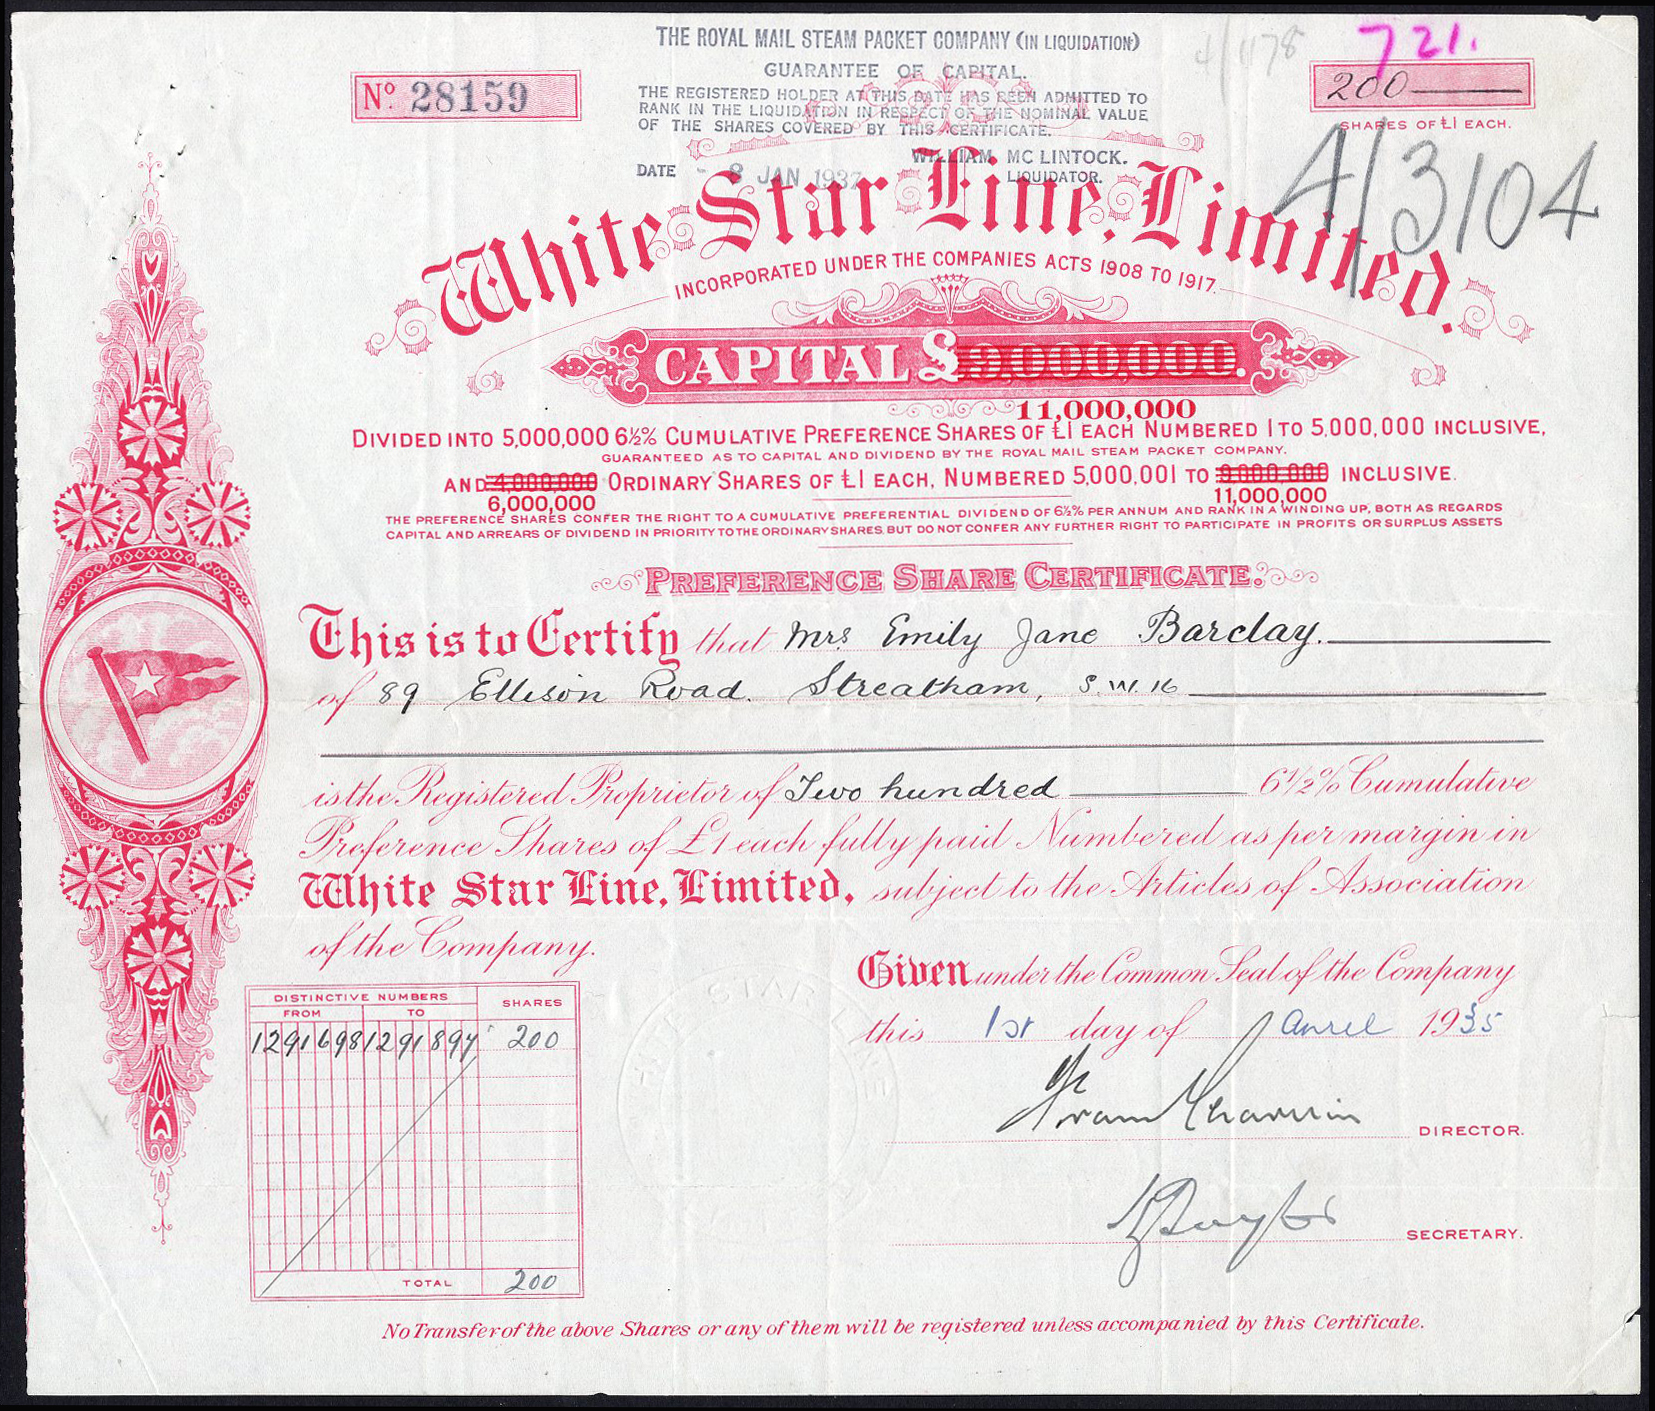 THE ROYAL MAIL STEAM PACKET COMPANY (IN LIQUIDATION)
GUARANTEE OF CAPITAL.
THE REGISTERED HOLDER AT THIS DATE HAS BEEN ADMITTED TO
RANK IN THE LIQUIDATION IN RESPECT OF THE NOMINAL VALUE
OF THE SHARES COVERED BY THIS CERTIFICATE.
WILLIAM MC LINTOCK.
DATE - 8 JAN 1937 LIQUIDATOR.
4/1178
721.
No 28159
200
SHARES OF £1 EACH.
A/3104
White Star Line, Limited.
INCORPORATED UNDER THE COMPANIES ACTS 1908 TO 1917.
CAPITAL £9,000,000.
11,000,000
DIVIDED INTO 5,000,000 6½% CUMULATIVE PREFERENCE SHARES OF £1 EACH NUMBERED 1 TO 5,000,000 INCLUSIVE,
GUARANTEED AS TO CAPITAL AND DIVIDEND BY THE ROYAL MAIL STEAM PACKET COMPANY.
AND 4,000,000 ORDINARY SHARES OF £1 EACH, NUMBERED 5,000,001 TO 9,000,000 INCLUSIVE.
6,000,000 11,000,000
THE PREFERENCE SHARES CONFER THE RIGHT TO A CUMULATIVE PREFERENTIAL DIVIDEND OF 6½% PER ANNUM AND RANK IN A WINDING UP, BOTH AS REGARDS
CAPITAL AND ARREARS OF DIVIDEND IN PRIORITY TO THE ORDINARY SHARES, BUT DO NOT CONFER ANY FURTHER RIGHT TO PARTICIPATE IN PROFITS OR SURPLUS ASSETS
PREFERENCE SHARE CERTIFICATE.
This is to Certify that Mrs. Emily Jane Barclay.
of 89 Ellison Road. Streatham, S.W. 16
is the Registered Proprietor of Two hundred 6½% Cumulative
Preference Shares of £1 each fully paid Numbered as per margin in
White Star Line, Limited, subject to the Articles of Association
of the Company.
Given under the Common Seal of the Company
this 1st day of April 1935
DIRECTOR.
SECRETARY.
DISTINCTIVE NUMBERS SHARES
FROM TO
1291698 1291897 200
TOTAL 200
No Transfer of the above Shares or any of them will be registered unless accompanied by this Certificate.